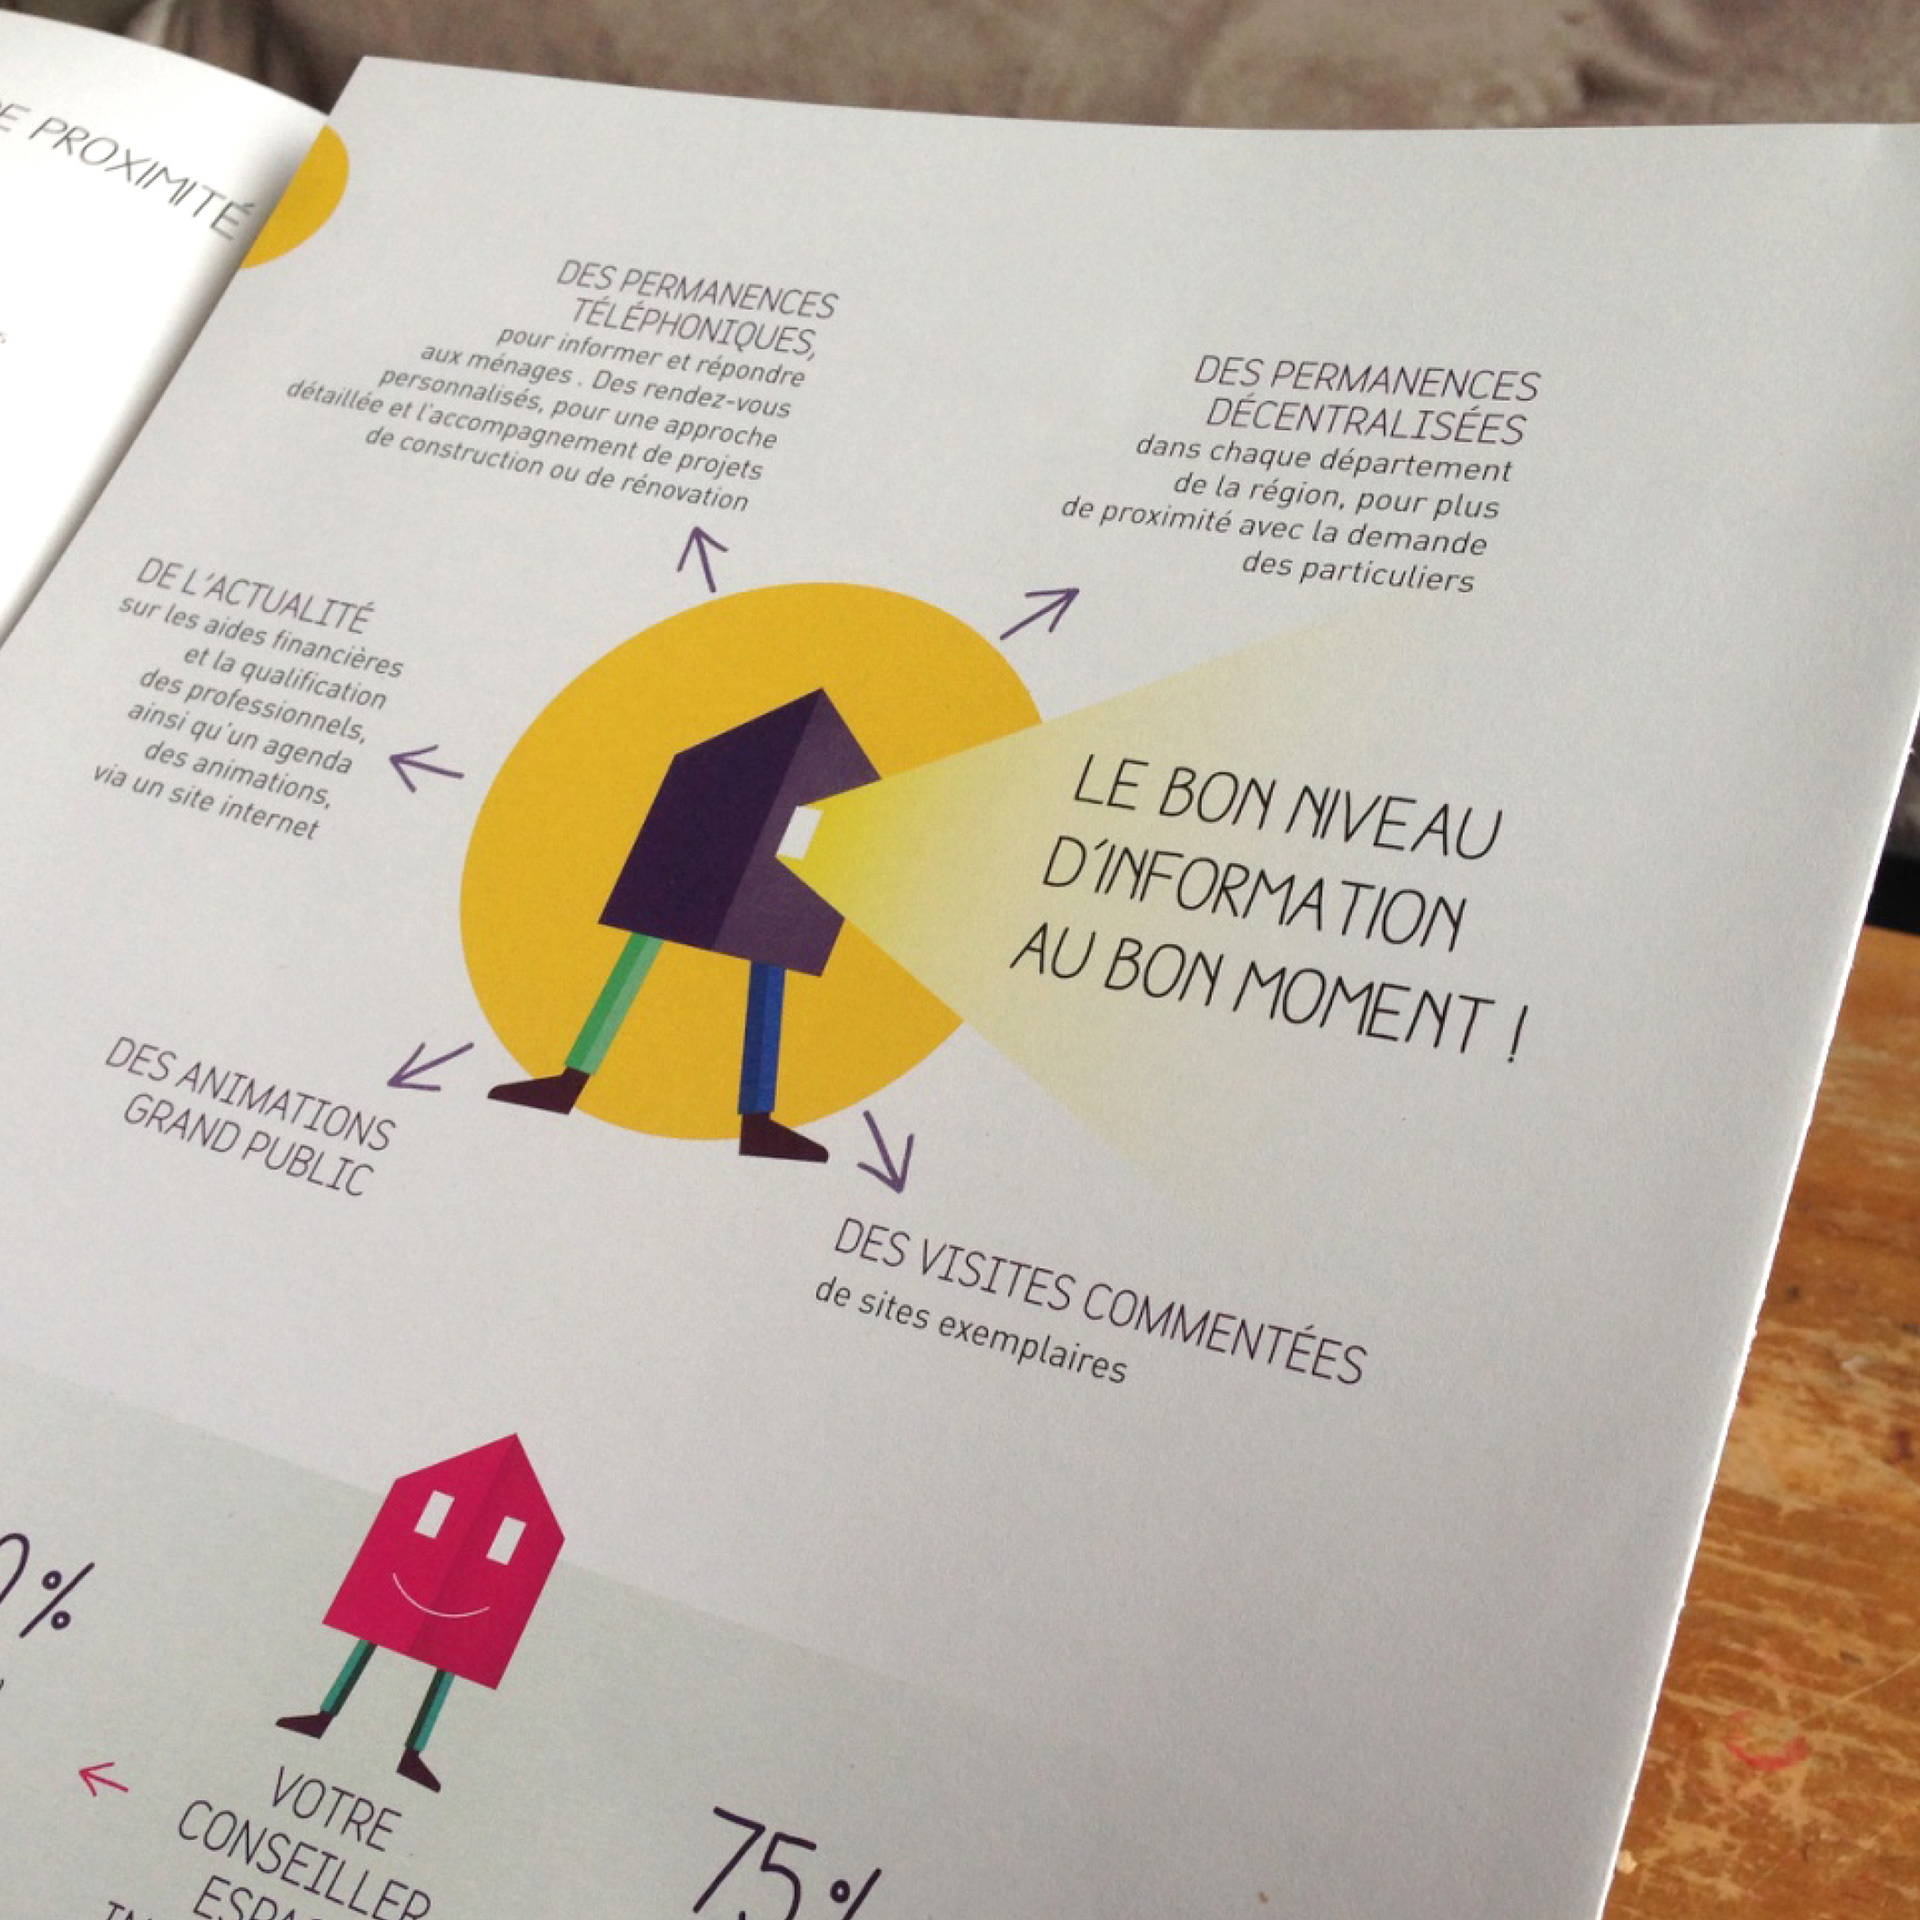 PROXIMITÉ
DES PERMANENCES
TÉLÉPHONIQUES,
pour informer et répondre
aux ménages . Des rendez-vous
personnalisés, pour une approche
détaillée et l'accompagnement de projets
de construction ou de rénovation
DES PERMANENCES
DÉCENTRALISÉES
dans chaque département
de la région, pour plus
de proximité avec la demande
des particuliers
DE L'ACTUALITÉ
sur les aides financières
et la qualification
des professionnels,
ainsi qu'un agenda
des animations,
via un site internet
LE BON NIVEAU
D'INFORMATION
AU BON MOMENT !
DES ANIMATIONS
GRAND PUBLIC
DES VISITES COMMENTÉES
de sites exemplaires
%
VOTRE
CONSEILLER
75%